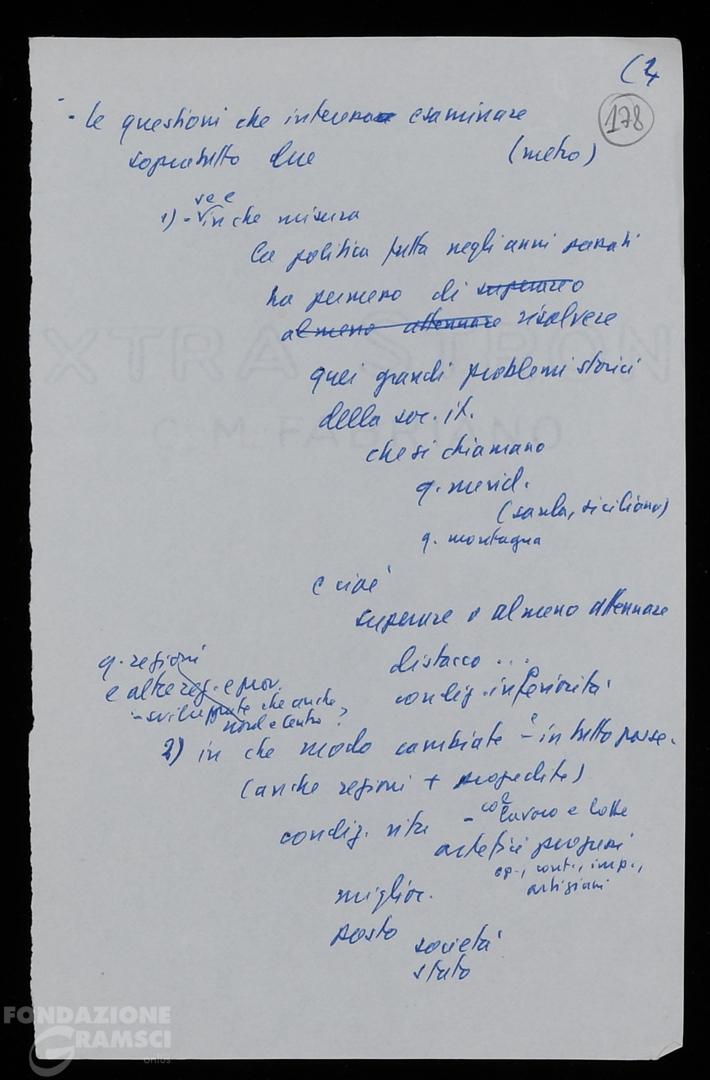 (2
178
- le questioni che interessa esaminare
sopratutto due (metro)
1) - se e in che misura
la politica fatta negli anni passati
ha permesso di superare o
almeno attenuare risolvere
quei grandi problemi storici
della soc. it.
che si chiamano
q. merid.
(sarda, siciliana)
q. montagna
e cioè
superare o almeno attenuare
distacco ...
condiz. inferiorità
q. regioni
e altre reg. e prov.
- sviluppate che anche
nord e centro ?
2) in che modo cambiate - in tutto paese.
(anche regioni + progredite)
condiz. vita - col lavoro e lotte
artefici progressi
op., cont., imp.,
artigiani
miglior.
posto
società
stato
XTRA STRON
C.M. FABRIANO
FONDAZIONE
GRAMSCI
onlus